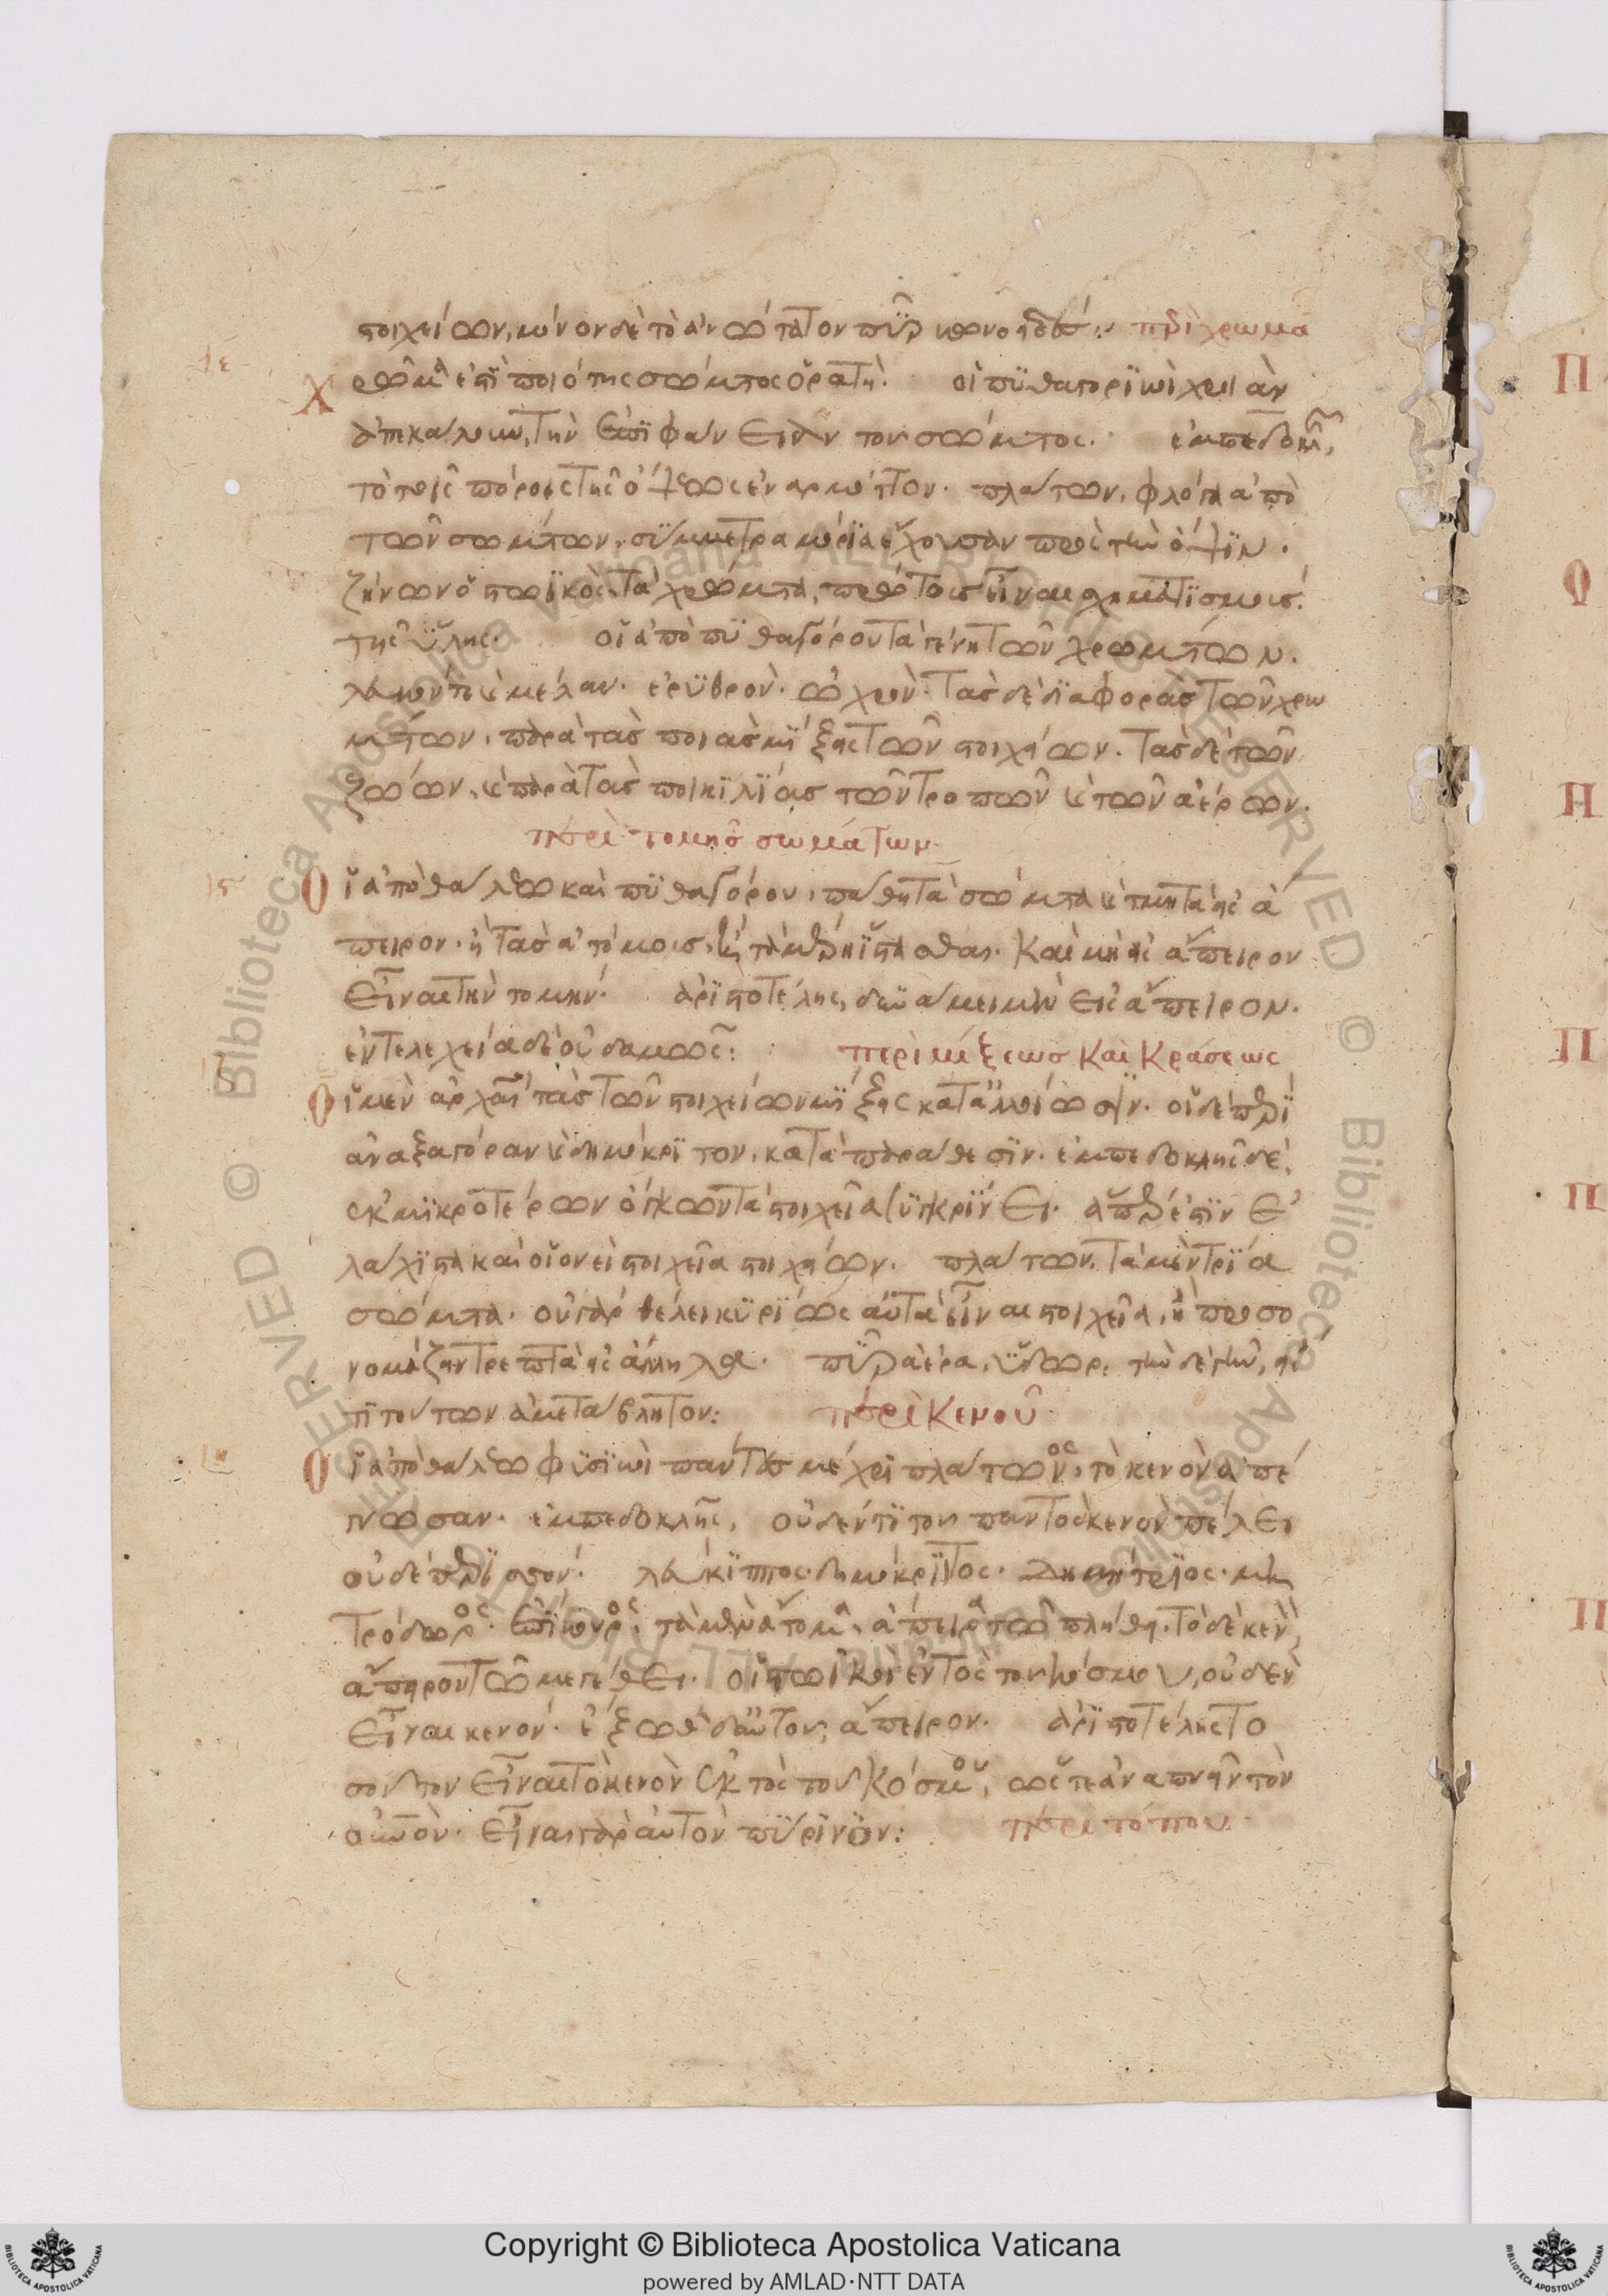 στοιχείων, μόνον δὲ τὸ ἀνώτατον πῦρ κωνοειδές: περὶ χρωμά
ιε
Χ ρῶμά ἐστι ποιότης σώματος ὁρατή. οἱ πυθαγορικοὶ χροιὰν
ἀπεκάλουν, τὴν ἐπιφάνειαν τοῦ σώματος. ἐμπεδοκλῆς,
τὸ τοῖς πόροις τῆς ὄψεως ἐναρμόττον. πλάτων, φλόγα ἀπὸ
τῶν σωμάτων, σύμμετρα μόρια ἔχουσαν πρὸς τὴν ὄψιν.
ζήνων ὁ στωϊκὸς, τὰ χρώματα, πρώτους εἶναι σχηματισμοὺς
τῆς ὕλης. οἱ ἀπὸ πυθαγόρου τὰ γένη τῶν χρωμάτων.
λευκόν τε καὶ μέλαν. ἐρυθρὸν. ὠχρὸν. τὰς δὲ διαφορὰς τῶν χρω
μάτων, παρὰ τὰς ποιὰς μίξεις τῶν στοιχείων. τὰς δὲ τῶν
ζώων, καὶ παρὰ τὰς ποικιλίας τῶν τροπῶν καὶ τῶν ἀέρων.
περὶ τομῆς σωμάτων
ιϛ
Ο ἱ ἀπὸ θάλεω καὶ πυθαγόρου, παθητὰ σώματα καὶ τμητὰ εἰς ἄ
πειρον. ἢ τὰς ἀτόμους, ἢ τὰ ἀμερῆ ἵστασθαι. καὶ μὴ εἰς ἄπειρον
εἶναι τὴν τομήν. ἀριστοτέλης, δυνάμει μὲν εἰς ἄπειρον.
ἐντελεχεία δὲ οὐδαμῶς: περὶ μίξεως καὶ κράσεως
ιζ
Ο ἱ μὲν ἀρχαῖοι τὰς τῶν στοιχείων μίξεις κατ' ἀλλοίωσιν. οἱ δὲ περὶ
ἀναξαγόραν καὶ δημόκριτον, κατὰ παράθεσιν. ἐμπεδοκλῆς δὲ,
ἐκ μικροτέρων ὄγκων τὰ στοιχεῖα συγκρίνει. ἅπερ ἐστὶν ἐ
λάχιστα καὶ οἱονεὶ στοιχεῖα στοιχείων. πλάτων. τὰ μὲν τρία
σώματα. οὐ γὰρ θέλει κυρίως αὐτὰ εἶναι στοιχεῖα, ἢ προσο
νομάζειν τρεπτὰ εἰς ἄλληλα. πῦρ ἀέρα, ὕδωρ, τὴν δὲ γῆν, εἴς
τι τούτων ἀμετάβλητον: περὶ κενοῦ
ιη
Ο ἱ ἀπὸ θάλεω φυσικοὶ πάντες μέχρι πλάτωνος, τὸ κενὸν ἀπέ
γνωσαν. ἐμπεδοκλῆς, οὐδέν τι τοῦ παντὸς κενὸν πέλει
οὐδὲ περισσόν. λεύκιππος. δημόκριτος. δημήτριος. μη
τρόδωρος. ἐπίκουρος. τὰ μὲν ἄτομα, ἄπειρα τῶ πλήθει. τὸ δὲ κενὸν,
ἄπειρον τῶ μεγέθει. οἱ στωϊκοὶ ἐντὸς τοῦ κόσμου, οὐδὲν
εἶναι κενόν. ἔξωθεν δ' αὐτοῦ, ἄπειρον. ἀριστοτέλης το
σοῦτον εἶναι τὸ κενὸν ἐκτὸς τοῦ κόσμου, ὥστε ἀναπνεῖν τὸν
οὐρανὸν. εἶναι γὰρ αὐτὸν πύρινον: περὶ τόπου